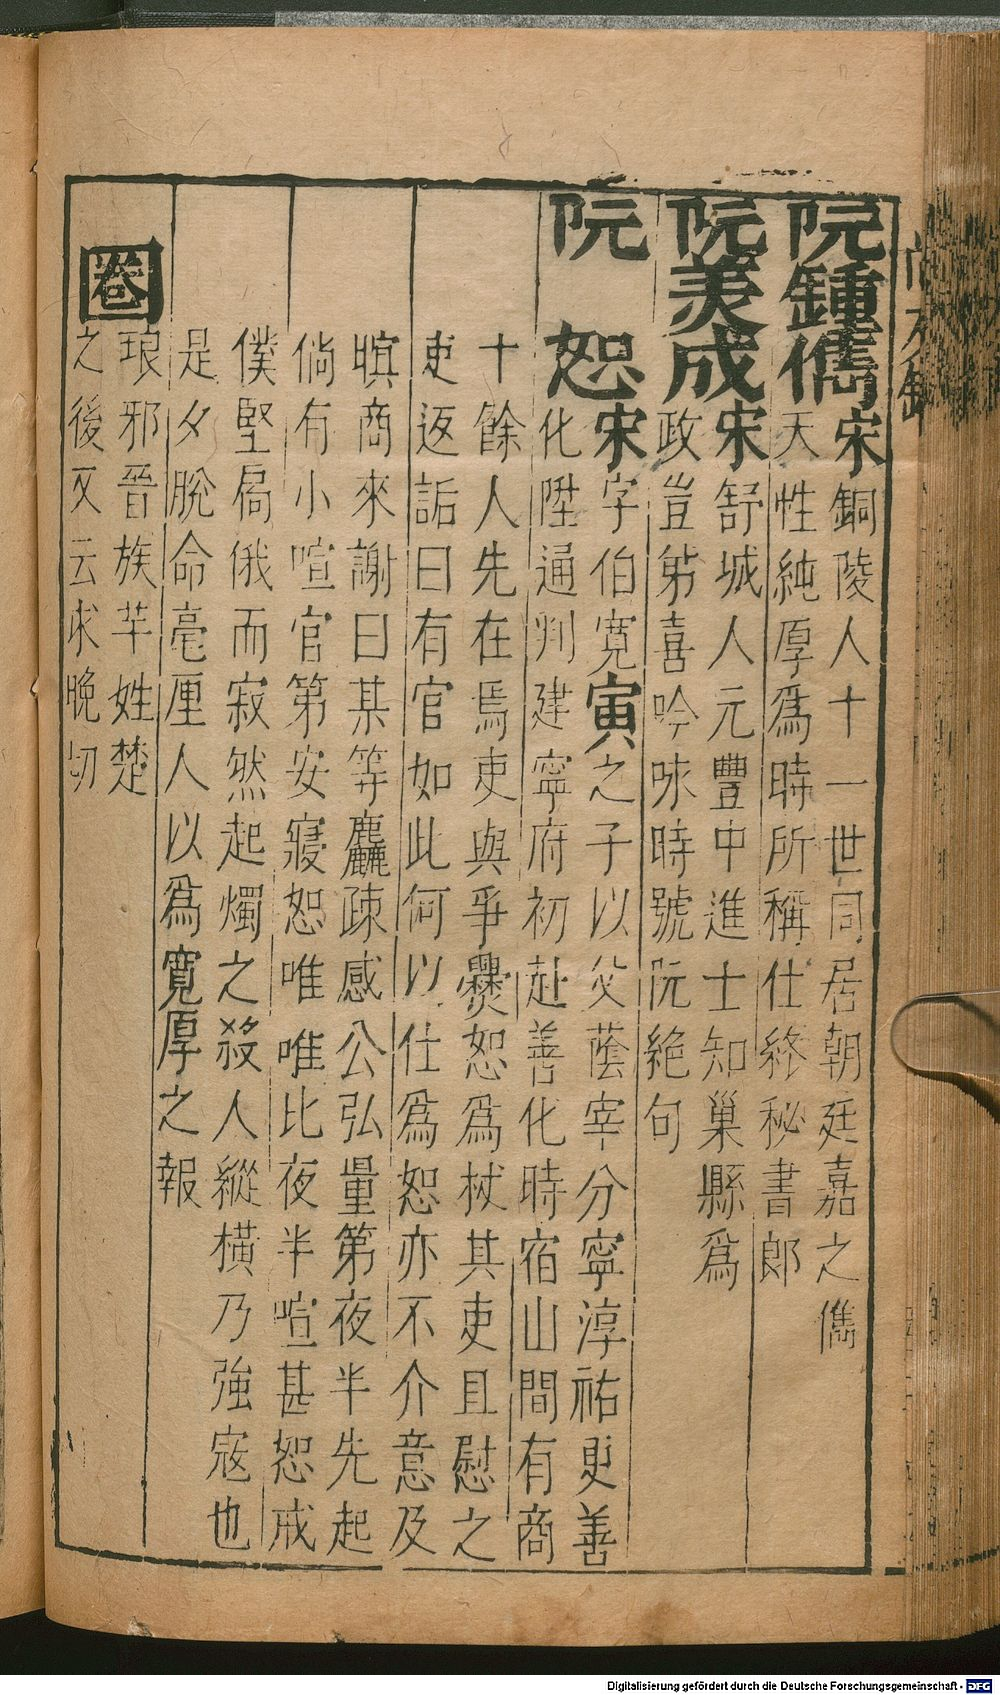 阮鍾儁宋銅陵人十一世同居朝廷嘉之儁
天性純厚爲時所稱仕終秘書郎
阮美成宋舒城人元豐中進士知巢縣爲
政豈弟喜吟咏時號阮絕句
阮恕宋字伯寬寅之子以父蔭宰分寧淳祐更善
化陞通判建寧府初赴善化時宿山間有商
十餘人先在焉吏與爭爨恕爲杖其吏且慰之
吏返詬曰有官如此何以仕爲恕亦不介意及
暝商來謝曰某等麤疎感公弘量第夜半先起
倘有小喧官第安寢恕唯唯比夜半喧甚恕戒
僕堅扃俄而寂然起燭之殺人縱橫乃強寇也
是夕脫命毫厘人以爲寬厚之報
圈琅邪晉族芊姓楚
之後又云求晚切
Digitalisierung gefördert durch die Deutsche Forschungsgemeinschaft - DFG